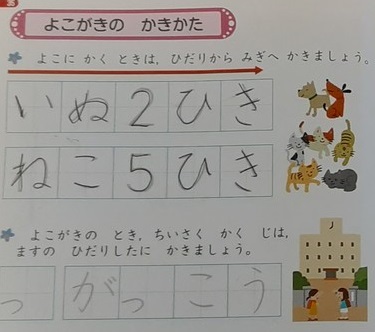 よこがきの かきかた
よこに かく ときは、ひだりから みぎへ かきましょう。
いぬ2ひき
ねこ5ひき
よこがきの とき、ちいさく かく じは、
ますの ひだりしたに かきましょう。
っ がっこう